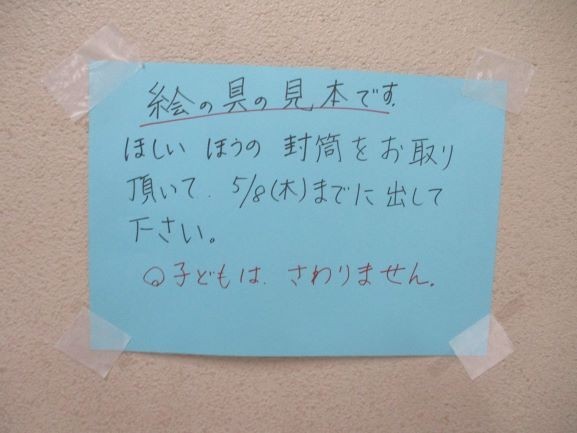 絵の具の見本です.
ほしい ほうの 封筒をお取り
頂いて. 5/8(木)までに出して
下さい。
○子どもは. さわりません.